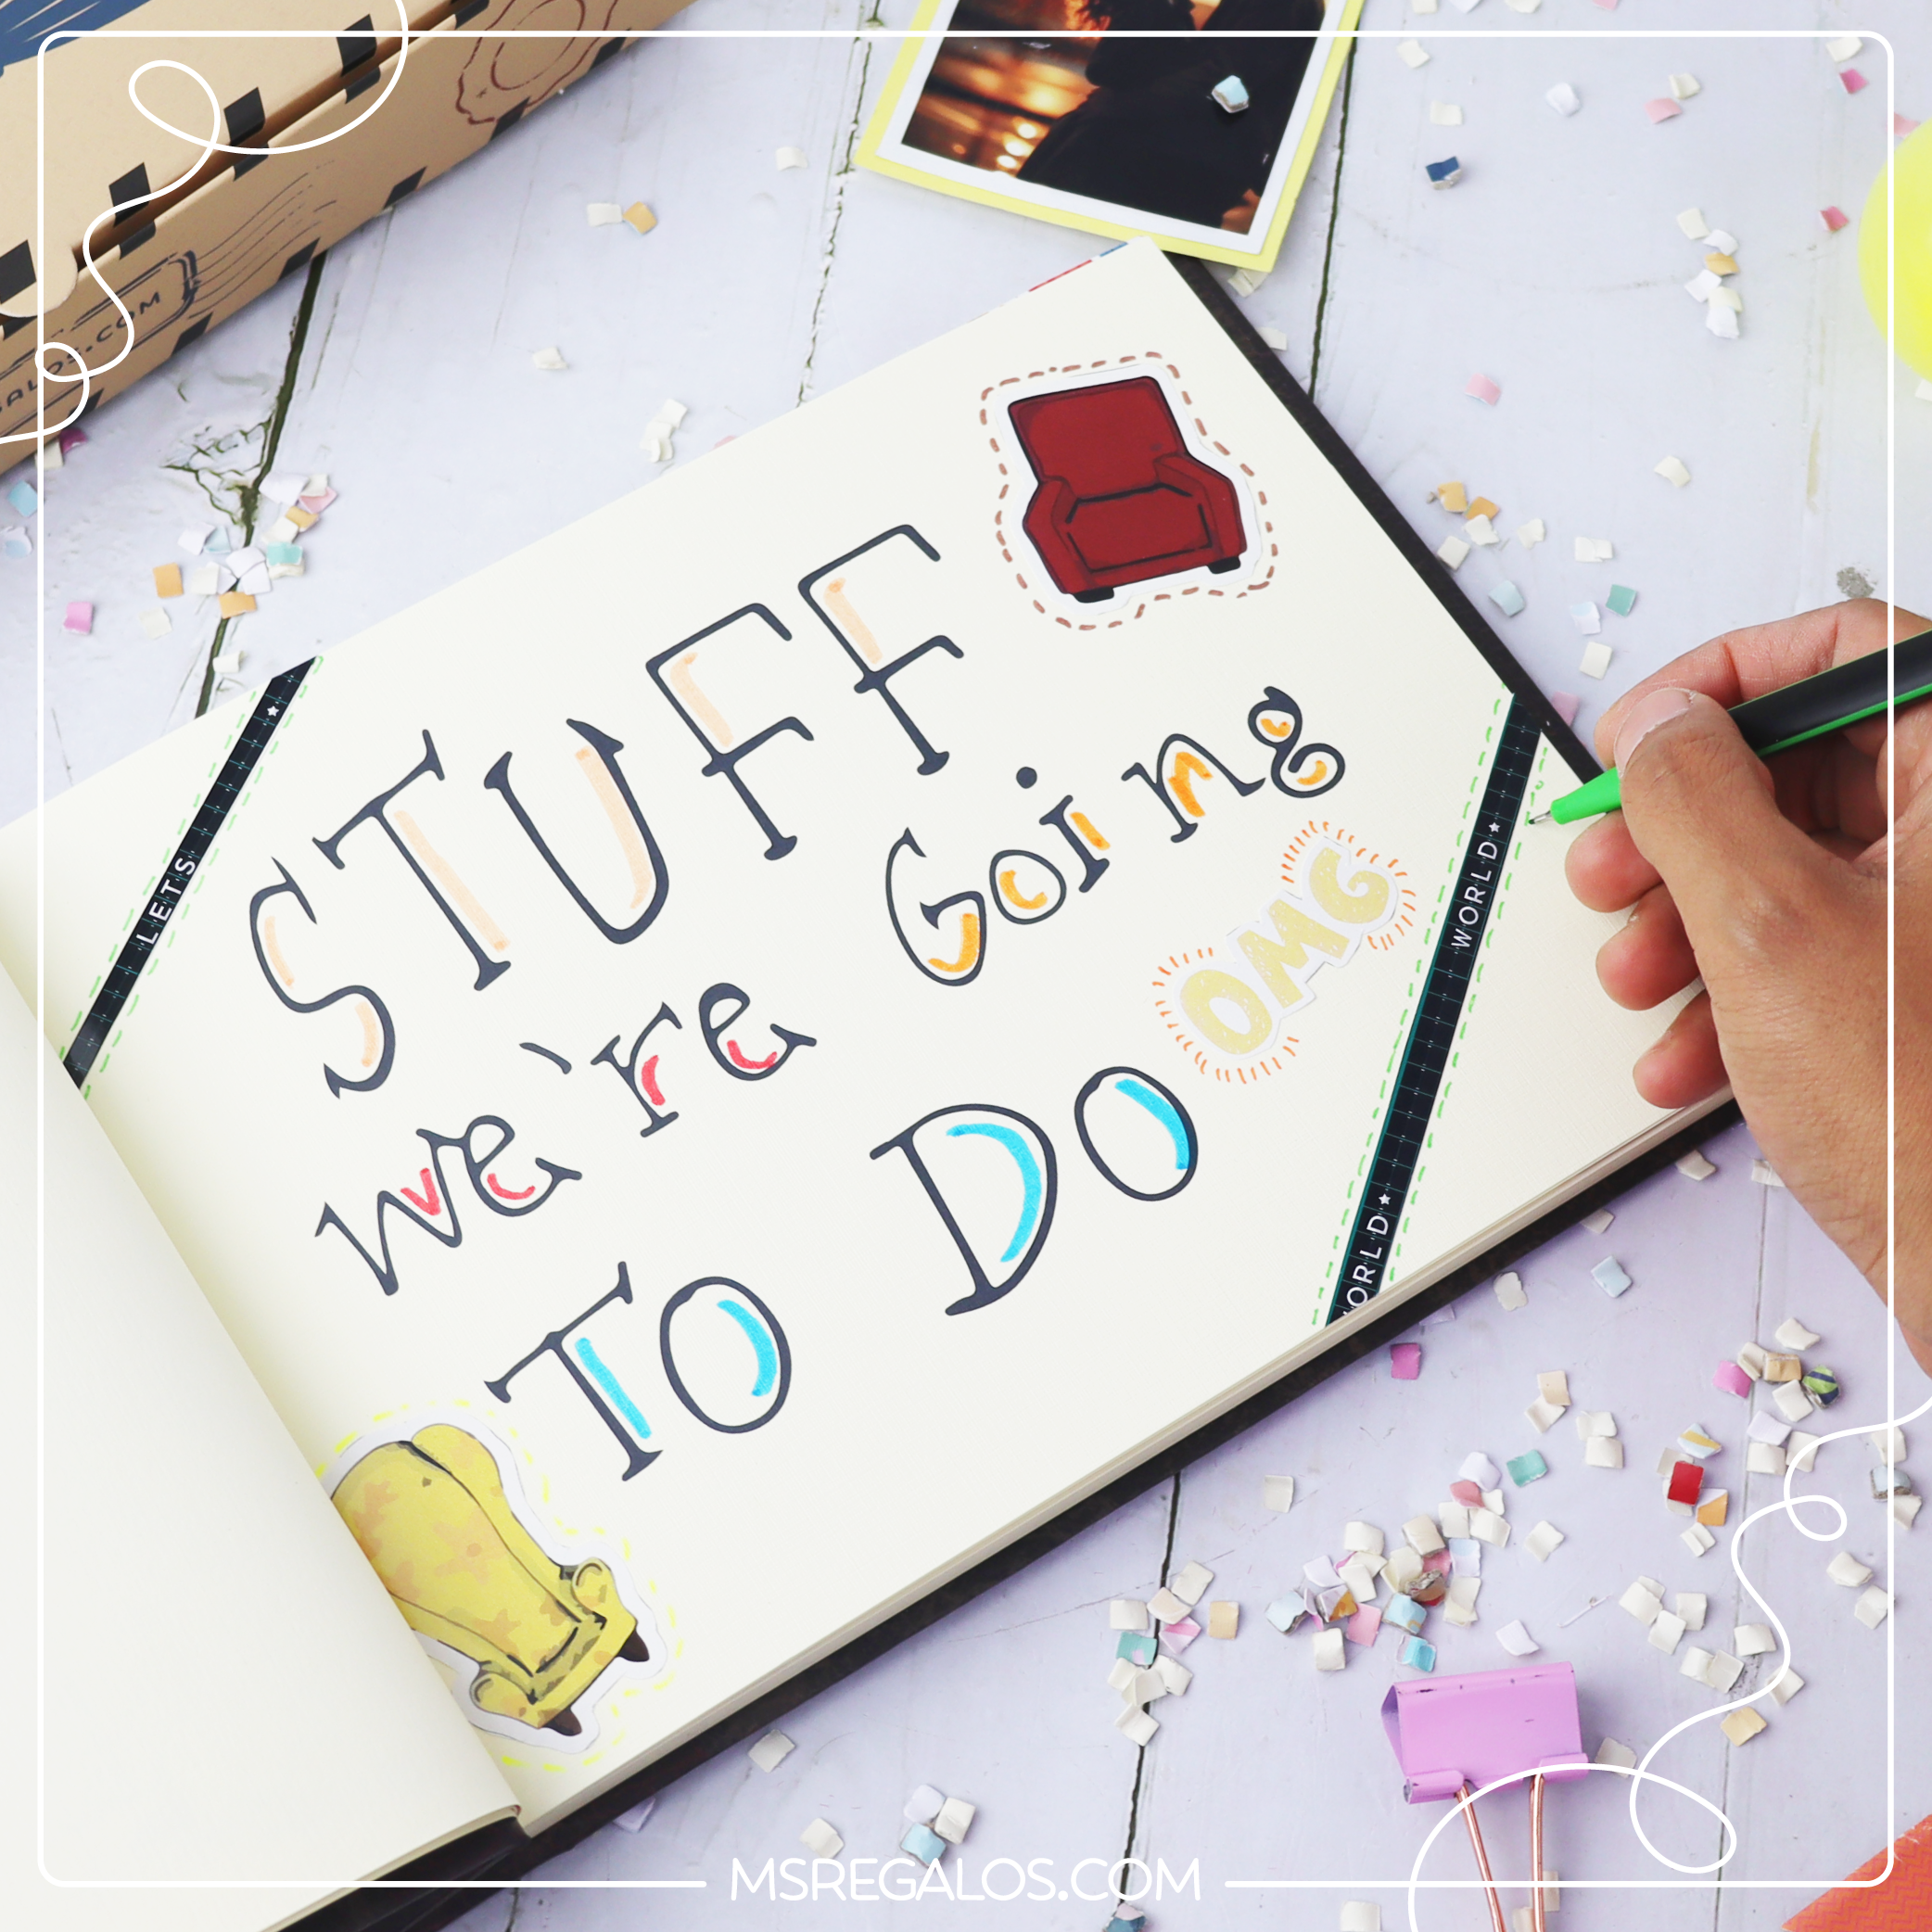 ALOS.COM
STUFF
we're Going
TO DO
OMG
LET'S
WORLD
WORLD
MSREGALOS.COM